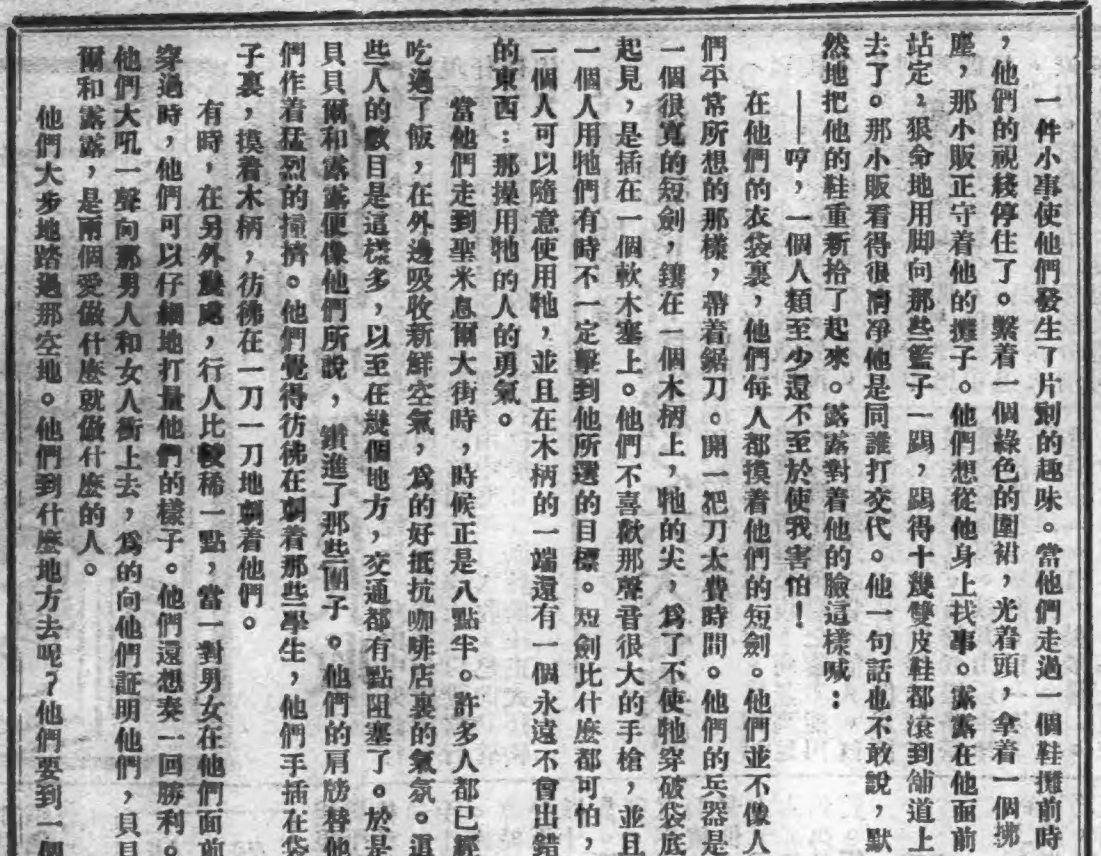 一件小事使他們發生了片刻的趣味。當他們走過一個鞋攤前時
，他們的視綫停住了。繫着一個綠色的圍裙，光着頭，拿着一個撢
塵，那小販正守着他的攤子。他們想從他身上找事。露露在他面前
站定，狠命地用脚向那些籃子一踢，踢得十幾雙皮鞋都滾到舖道上
去了。那小販看得很清凈他是同誰打交代。他一句話也不敢說，默
然地把他的鞋重新拾了起來。露露對着他的臉這樣喊：
——哼，一個人類至少還不至於使我害怕！
在他們的衣袋裏，他們每人都摸着他們的短劍。他們並不像人
們平常所想的那樣，帶着鋸刀。開一把刀太費時間。他們的兵器是
一個很寬的短劍，鑲在一個木柄上，牠的尖，爲了不使牠穿破袋底
起見，是插在一個軟木塞上。他們不喜歡那聲音很大的手槍，並且
一個人用牠們有時不一定擊到他所選的目標。短劍比什麽都可怕，
一個人可以隨意使用牠，並且在木柄的一端還有一個永遠不會出錯
的東西：那操用牠的人的勇氣。
當他們走到聖米息爾大街時，時候正是八點半。許多人都已經
吃過了飯，在外邊吸收新鮮空氣，爲的好抵抗咖啡店裏的氣氛。這
些人的數目是這樣多，以至在幾個地方，交通都有點阻塞了。於是
貝貝爾和露露便像他們所說，鑽進了那些團子。他們的肩膀替他
們作着猛烈的撞擠。他們覺得彷彿在剸着那些學生，他們手插在袋
子裏，摸着木柄，彷彿在一刀一刀地剸着他們。
有時，在另外幾處，行人比較稀一點，當一對男女在他們面前
穿過時，他們可以仔細地打量他們的樣子。他們還想奏一回勝利。
他們大吼一聲向那男人和女人衝上去，爲的向他們証明他們，貝貝
爾和露露，是兩個愛做什麽就做什麽的人。
他們大步地踏過那空地。他們到什麽地方去呢？他們要到一個